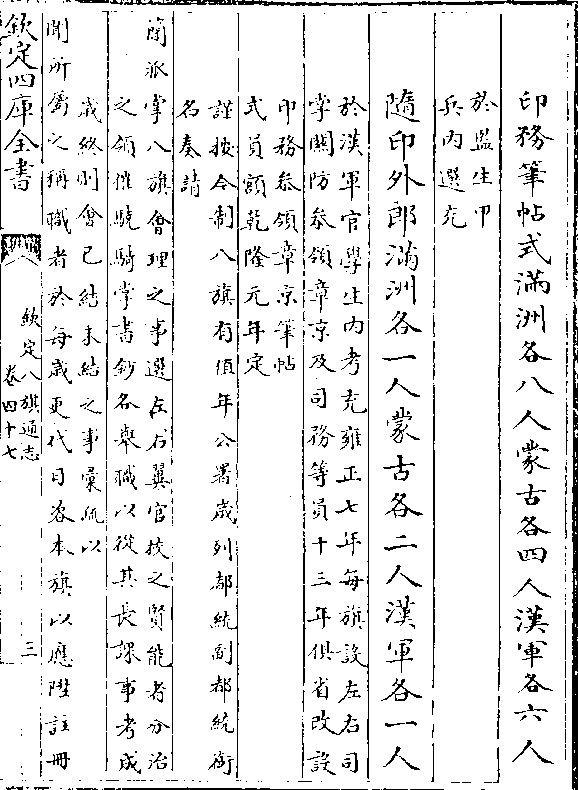 印務筆帖式滿洲各八人蒙古各四人漢軍各六人
於監生甲
兵內選充
隨印外郎滿洲各一人蒙古各二人漢軍各一人
於漢軍官學生內考充雍正七年每旗設左右司
掌關防參領章京及司務等員十三年俱省改設
印務參領章京筆帖
式員額乾隆元年定
謹按令制八旗有值年公署歲列都統副都統銜
名奏請
簡派掌八旗會理之事選左右翼官校之賢能者分治
之領催驍騎掌書鈔各舉職以從其長課事考成
歲終則會已結未結之事彙疏以
聞所屬之稱職者於每歲更代日咨本旗以應陞註冊
欽定四庫全書
欽定八旗通志
卷四十七
三